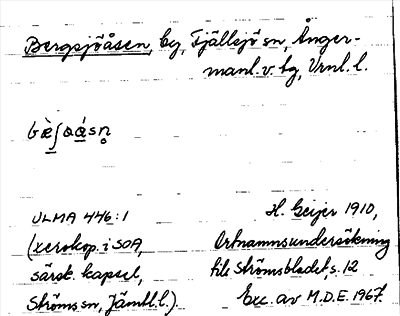 Bergsjöåsen, by, Fjällsjö sn, Ånger-
manl. v. tg, Vrnl. l.
bæ̀ʃoa̱ásn̥
ULMA 446:1
(xerokop. i SOA,
särsk. kapsel,
Ströms sn, Jämtl. l.)
H. Geijer 1910,
Ortnamnsundersökning
till Strömsbladet, s. 12
Exc. av M.D.E. 1967.